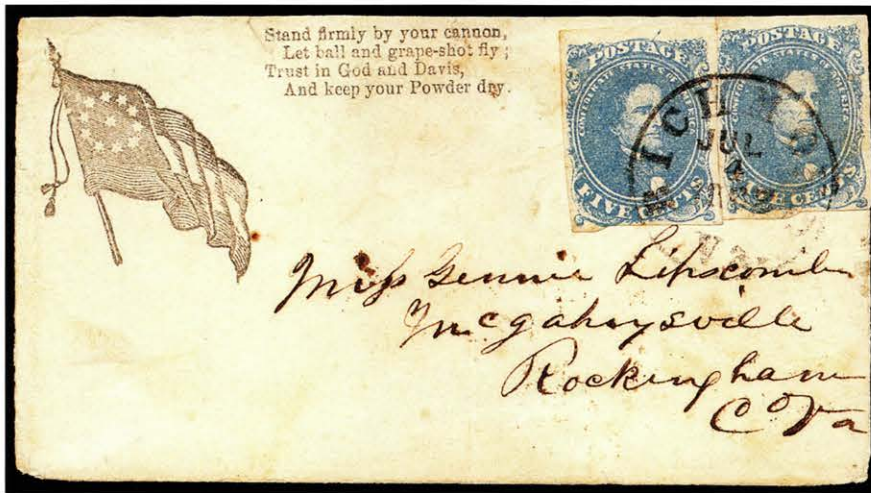 Stand firmly by your cannon,
Let ball and grape-shot fly;
Trust in God and Davis,
And keep your Powder dry.
POSTAGE
CONFEDERATE STATES OF AMERICA
FIVE CENTS
POSTAGE
CONFEDERATE STATES OF AMERICA
FIVE CENTS
RICHMO
JUL
Miss Gennie Lipscomb
McGaheysville
Rockingham
Co Va